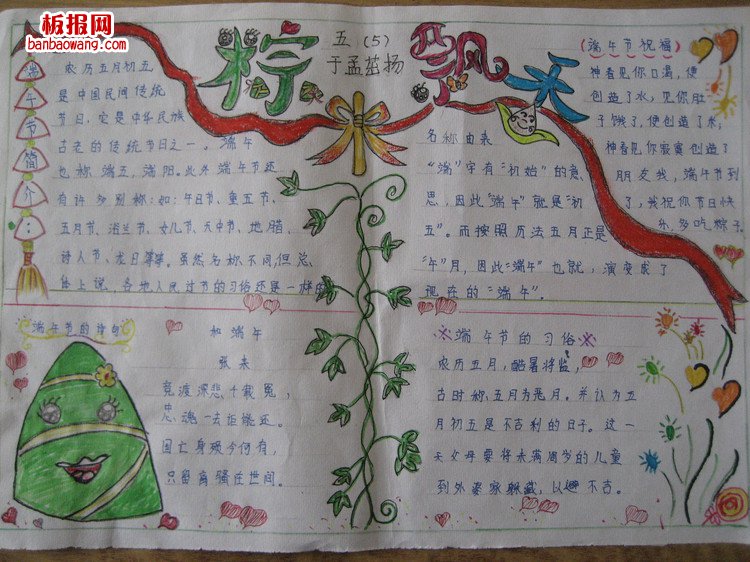 板报网
banbaowang.com
粽飘香
五(5)
于孟茁扬
端午节简介:
农历五月初五
是中国民间传统
节日,它是中华民族
古老的传统节日之一。端午
也称端五,端阳。此外端午节还
有许多别称:如:午日节、重五节、
五月节、浴兰节、女儿节、天中节、地腊、
诗人节、龙日等等。虽然名称不同,但总
体上说,各地人民过节的习俗还是一样的
名称由来
“端”字有“初始”的意
思,因此“端午”就是“初
五”。而按照历法五月正是
“午”月,因此“端午”也就演变成了
现在的“端午”。
(端午节祝福)
神看见你口渴,便
创造了水;见你肚
子饿了,便创造了米;
神看见你寂寞创造了
朋友我,端午节到
了,我祝你节日快
乐,多吃粽子
端午节的诗句
和端午
张耒
竞渡深悲千载冤,
忠魂一去讵能还。
国亡身殒今何有,
只留离骚在世间。
端午节的习俗
农历五月,酷暑将临,
古时称五月为恶月。并认为五
月初五是不吉利的日子。这一
天父母要将未满周岁的儿童
到外婆家躲藏,以避不吉。